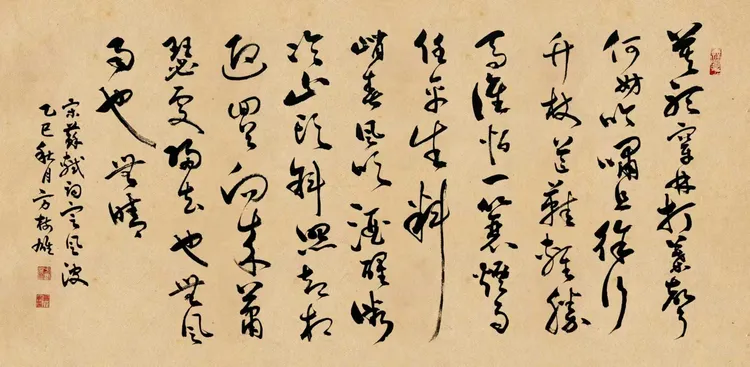 莫聽穿林打葉聲
何妨吟嘯且徐行
竹杖芒鞋輕勝
馬誰怕一蓑煙雨
任平生料
峭春風吹酒醒微
冷山頭斜照却相
迎回首向来蕭
瑟處歸去也無風
雨也無晴
宋蘇軾詞定風波
乙巳秋月方樹雄